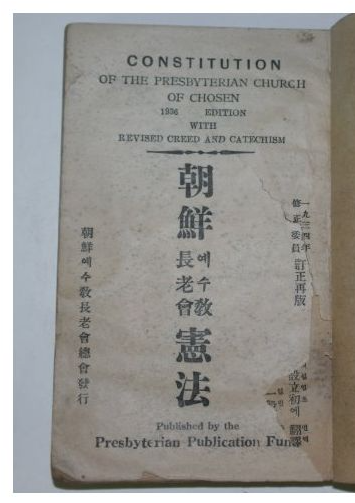 CONSTITUTION
OF THE PRESBYTERIAN CHURCH
OF CHOSEN
1936 EDITION
WITH
REVISED CREED AND CATECHISM
朝鮮
예수敎
長老會
憲法
一九三四年 訂正再版
修正委員
設立初에 飜譯
朝鮮예수敎長老會總會發行
Published by the
Presbyterian Publication Fund